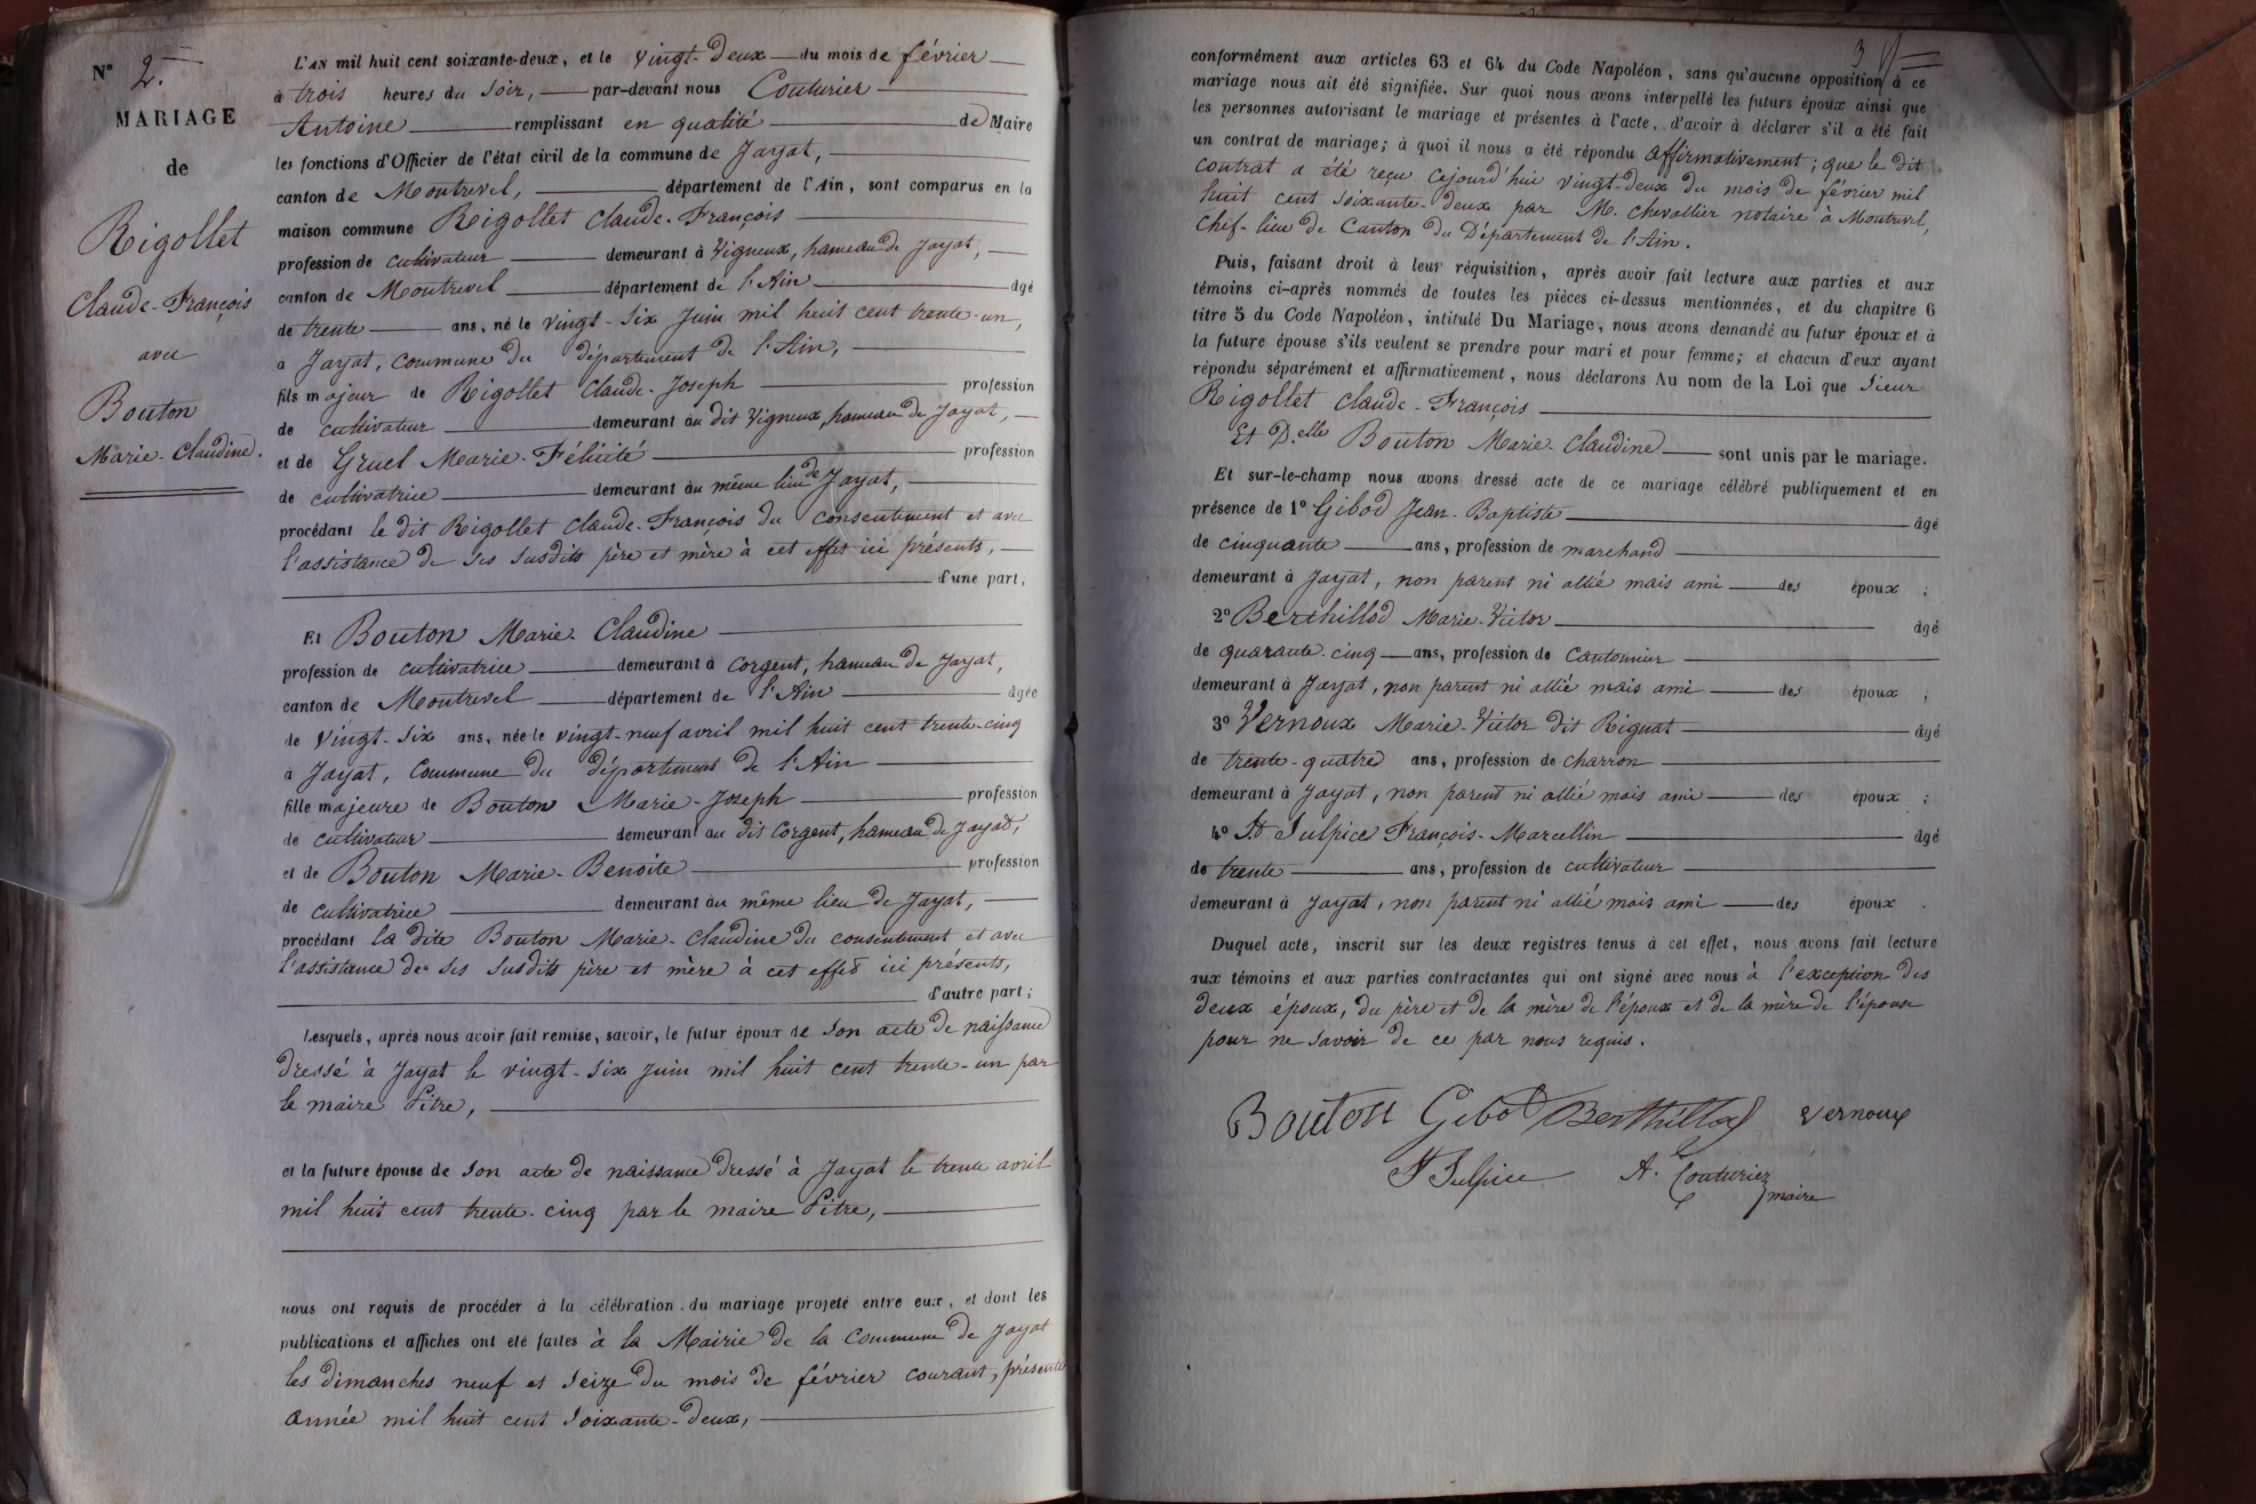 N° 2.
MARIAGE
de
Rigollet
Claude-François
avec
Bouton
Marie-Claudine.
L'AN mil huit cent soixante-deux, et le vingt-deux du mois de février
à trois heures du soir, par-devant nous Couturier
Antoine remplissant en qualité de Maire
les fonctions d'Officier de l'état civil de la commune de Jayat,
canton de Montrevel, département de l'Ain, sont comparus en la
maison commune Rigollet Claude-François
profession de cultivateur demeurant à Vigneux, hameau de Jayat,
canton de Montrevel département de l'Ain âgé
de trente ans, né le vingt-six Juin mil huit cent trente-un,
à Jayat, commune du département de l'Ain,
fils majeur de Rigollet Claude-Joseph profession
de cultivateur demeurant au dit Vigneux, hameau de Jayat,
et de Gruel Marie-Félicité profession
de cultivatrice demeurant au même lieu de Jayat,
procédant le dit Rigollet Claude-François du consentement et avec
l'assistance de ses susdits père et mère à cet effet ici présents,
d'une part;
Et Bouton Marie-Claudine
profession de cultivatrice demeurant à Corgent, hameau de Jayat,
canton de Montrevel département de l'Ain âgée
de vingt-six ans, née le vingt-neuf avril mil huit cent trente-cinq
à Jayat, commune du département de l'Ain
fille majeure de Bouton Marie-Joseph profession
de cultivateur demeurant au dit Corgent, hameau de Jayat,
et de Bouton Marie-Benoite profession
de cultivatrice demeurant au même lieu de Jayat,
procédant la dite Bouton Marie-Claudine du consentement et avec
l'assistance de ses susdits père et mère à cet effet ici présents,
d'autre part;
Lesquels, après nous avoir fait remise, savoir, le futur époux de son acte de naissance
dressé à Jayat le vingt-six Juin mil huit cent trente-un par
le maire Pitre,
et la future épouse de son acte de naissance dressé à Jayat le trente avril
mil huit cent trente-cinq par le maire Pitre,
nous ont requis de procéder à la célébration du mariage projeté entre eux, et dont les
publications et affiches ont été faites à la Mairie de la Commune de Jayat
les dimanches neuf et seize du mois de février courant, présente
année mil huit cent soixante-deux,
3
conformément aux articles 63 et 64 du Code Napoléon, sans qu'aucune opposition à ce
mariage nous ait été signifiée. Sur quoi nous avons interpellé les futurs époux ainsi que
les personnes autorisant le mariage et présentes à l'acte, d'avoir à déclarer s'il a été fait
un contrat de mariage; à quoi il nous a été répondu affirmativement; que le dit
contrat a été reçu cejourd'hui vingt-deux du mois de février mil
huit cent soixante-deux par M. Chevallier notaire à Montrevel,
Chef-lieu de Canton du Département de l'Ain.
Puis, faisant droit à leur réquisition, après avoir fait lecture aux parties et aux
témoins ci-après nommés de toutes les pièces ci-dessus mentionnées, et du chapitre 6
titre 5 du Code Napoléon, intitulé Du Mariage, nous avons demandé au futur époux et à
la future épouse s'ils veulent se prendre pour mari et pour femme; et chacun d'eux ayant
répondu séparément et affirmativement, nous déclarons Au nom de la Loi que Sieur
Rigollet Claude-François
Et D.elle Bouton Marie-Claudine sont unis par le mariage.
Et sur-le-champ nous avons dressé acte de ce mariage célébré publiquement et en
présence de 1° Gibod Jean-Baptiste âgé
de cinquante ans, profession de marchand
demeurant à Jayat, non parent ni allié mais ami des époux ;
2° Berthillod Marie-Victor âgé
de quarante-cinq ans, profession de Cantonnier
demeurant à Jayat, non parent ni allié mais ami des époux ;
3° Vernoux Marie-Victor dit Riguat âgé
de trente-quatre ans, profession de charron
demeurant à Jayat, non parent ni allié mais ami des époux ;
4° St Sulpice François-Marcellin âgé
de trente ans, profession de cultivateur
demeurant à Jayat, non parent ni allié mais ami des époux .
Duquel acte, inscrit sur les deux registres tenus à cet effet, nous avons fait lecture
aux témoins et aux parties contractantes qui ont signé avec nous à l'exception des
deux époux, du père et de la mère de l'époux et de la mère de l'épouse
pour ne savoir de ce par nous requis.
Bouton Gibod Berthillod Vernoux
St Sulpice A. Couturier
maire